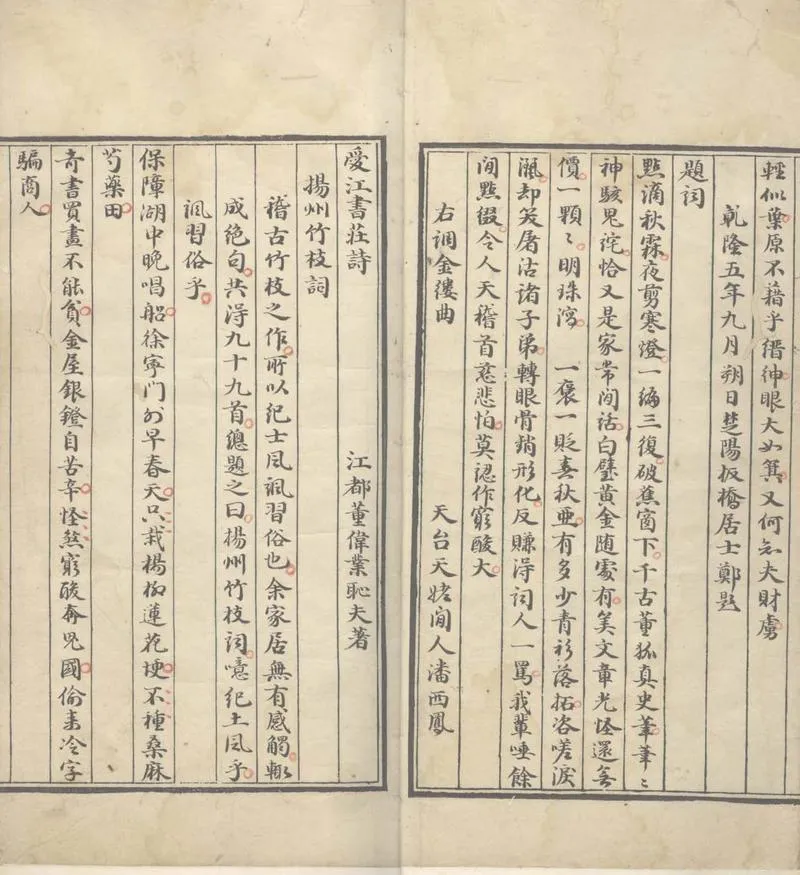 輕似葉原不藉乎縉紳眼大如箕又何知夫財虜
乾隆五年九月朔日楚陽板橋居士鄭題
題詞
點滴秋霖夜剪寒燈一編三復破蕉窗下千古董狐真史筆筆〻
神駭鬼詫恰又是家常閒話白璧黃金随處有美文章光怪還無
價一顆〻明珠瀉 一褒一貶春秋亞有多少青衫落拓咨嗟淚
灑却笑屠沽諸子弟轉眼骨銷形化反賺淂詞人一罵我輩唾餘
閒點綴令人天稽首慈悲怕莫認作窮酸大
右調金縷曲 天台天姥閒人潘西鳳
愛江書莊詩 江都董偉業恥夫著
揚州竹枝詞
稽古竹枝之作所以紀士風諷習俗也余家居無有感觸輒
成絕句共淂九十九首總題之曰揚州竹枝詞噫紀土風乎
諷習俗乎
保障湖中晚唱船徐寧門外早春天只栽楊柳蓮花埂不種桑麻
芍藥田
奇書買畫不能貧金屋銀鐙自苦辛怪煞窮酸奔鬼國偷來冷字
騙商人